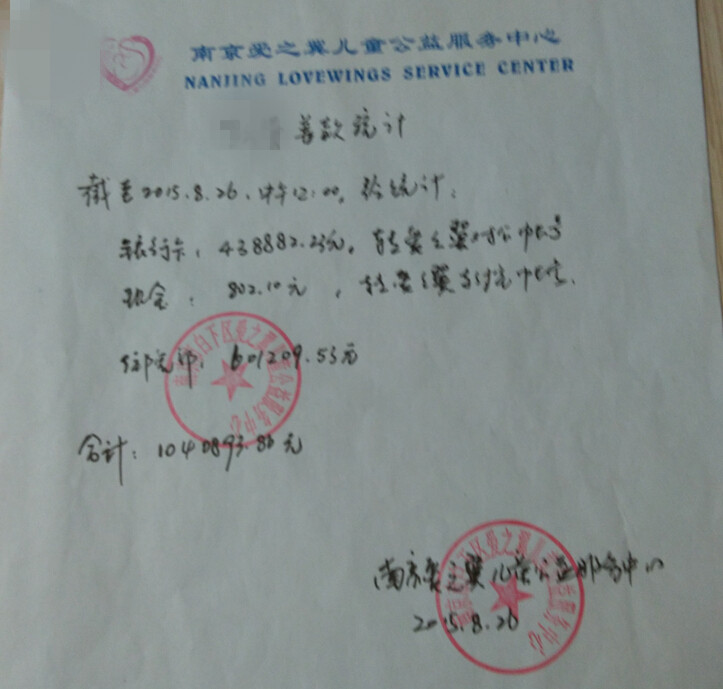 南京爱之翼儿童公益服务中心
NANJING LOVEWINGS SERVICE CENTER
善款统计
截至2015.8.26.中午12:00,经统计:
银行卡:438882.23元,转爱之翼对公帐号
现金:802.10元,转爱之翼对公帐号.
住院部:601209.53元
合计:1040893.86元
南京爱之翼儿童公益服务中心
2015.8.26